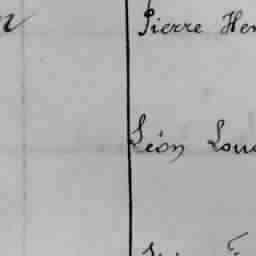 Pierre Hen
Léon Loui